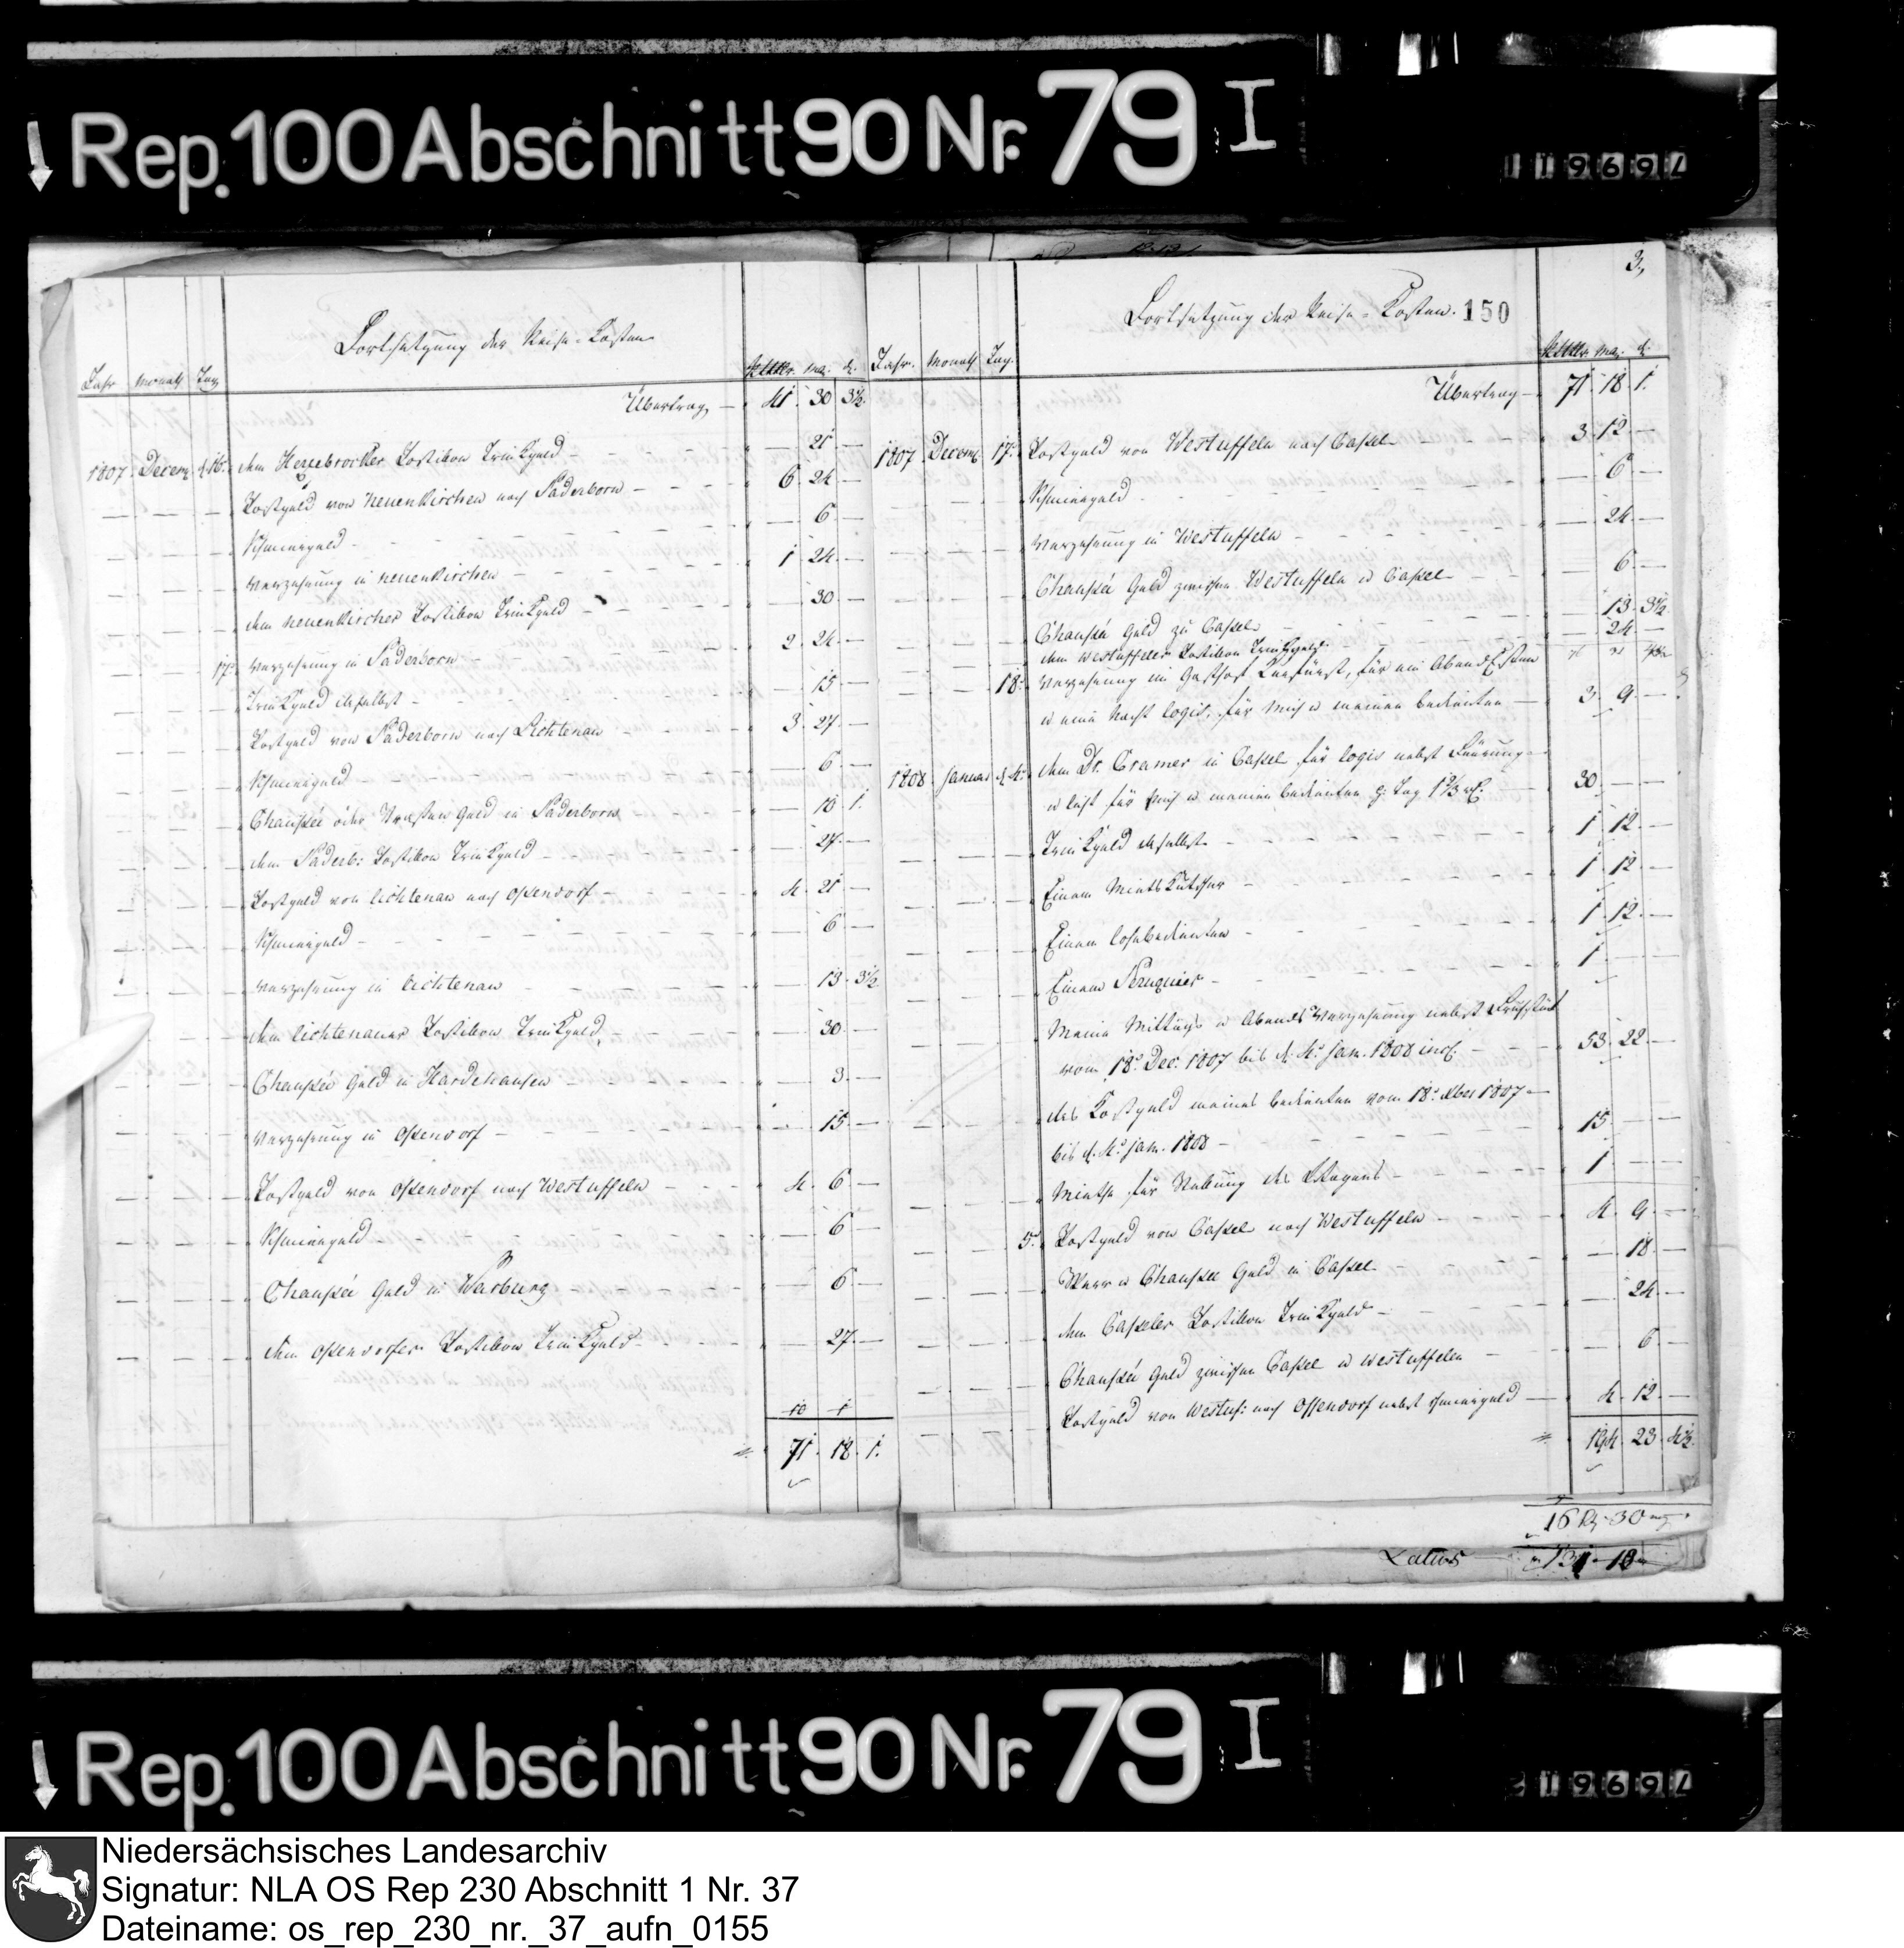 Rep. 100 Abschnitt 90 Nr. 79 I
11969/
Fortsetzung der Reise-Kosten
Jahr Monath Tag Rthlr. mg: d.
Übertrag — 41. 30 3½.
1807. Decemb. d. 16. dem Herzebrocker Postillon Trinkgeld — 21. —
Postgeld von Neuenkirchen nach Paderborn — 6. 24. —
Schmiergeld — 6. —
Verzehrung in Neuenkirchen — 1. 24. —
dem Neuenkircher Postillon Trinkgeld — 30. —
17. Verzehrung in Paderborn — 2. 24. —
Trinkgeld daselbst — 15. —
Postgeld von Paderborn nach Lichtenau — 3. 27. —
Schmiergeld — 6. —
Chaussée oder Pflaster Geld in Paderborn — 10 1.
dem Paderb: Postillon Trinkgeld — 27. —
Postgeld von Lichtenau nach Ossendorf — 4. 21. —
Schmiergeld — 6. —
Verzehrung in Lichtenau — 13. 3½
dem Lichtenauer Postillon Trinkgeld — 30. —
Chaussée Geld in Hardehausen — 3. —
Verzehrung in Ossendorf — 15. —
Postgeld von Ossendorf nach Westuffeln — 4. 6. —
Schmiergeld — 6. —
Chaussée Geld in Warburg — 6. —
dem Ossendorfer Postillon Trinkgeld — 27. —
10 1
71. 18. 1.
3,
Fortsetzung der Reise-Kosten. 150
Jahr. Monath Tag. Rthlr. mg: d.
Übertrag — 71. 18. 1.
1807 Decemb. 17. Postgeld von Westuffeln nach Cassel — 3. 12. —
Schmiergeld — 6. —
Verzehrung in Westuffeln — 24. —
Chaussée Geld zwischen Westuffeln u Cassel — 6. —
Chaussée Geld zu Cassel — 13. 3½.
dem Westuffeler Postillon Trinkgeld — 24 —
18. Verzehrung im Gasthof Kurfürst, für ein Abend Essen
u eine Nacht Logis, für mich u meinen Bedienten — 3. 9. —
1808. Januar d. 4. dem Dr. Cramer in Cassel für Logis nebst Feurung
u Licht für mich u meinen Bedienten p. Tag 1⅔ rt. 30. — —
Trinkgeld daselbst — 1. 12. —
Einem Mieths Kutscher — 1. 12. —
Einem Lohnbedienten — 1. 12. —
Einem Peruquier — 1. — —
Meine Mittags u Abends Verzehrung nebst Frühstück
vom 18. Dec. 1807 bis d. 4. Jan. 1808 incl. — 53. 22. —
das Kostgeld meines Bedienten vom 18. xber 1807 —
bis d. 4. Jan. 1808 — 15. — —
Miethe für Stellung des Wagens — 1. — —
5. Postgeld von Cassel nach Westuffeln — 4. 9. —
u Chaussee Geld in Cassel — 18. —
dem Casseler Postillon Trinkgeld — 24. —
Chaussée Geld zwischen Cassel u Westuffeln — 6. —
Postgeld von Westuf: nach Ossendorf nebst Schmiergeld — 4. 12. —
194. 23. 4½.
16 30
Latus 131 - 10
Rep. 100 Abschnitt 90 Nr. 79 I
Niedersächsisches Landesarchiv
Signatur: NLA OS Rep 230 Abschnitt 1 Nr. 37
Dateiname: os_rep_230_nr._37_aufn_0155